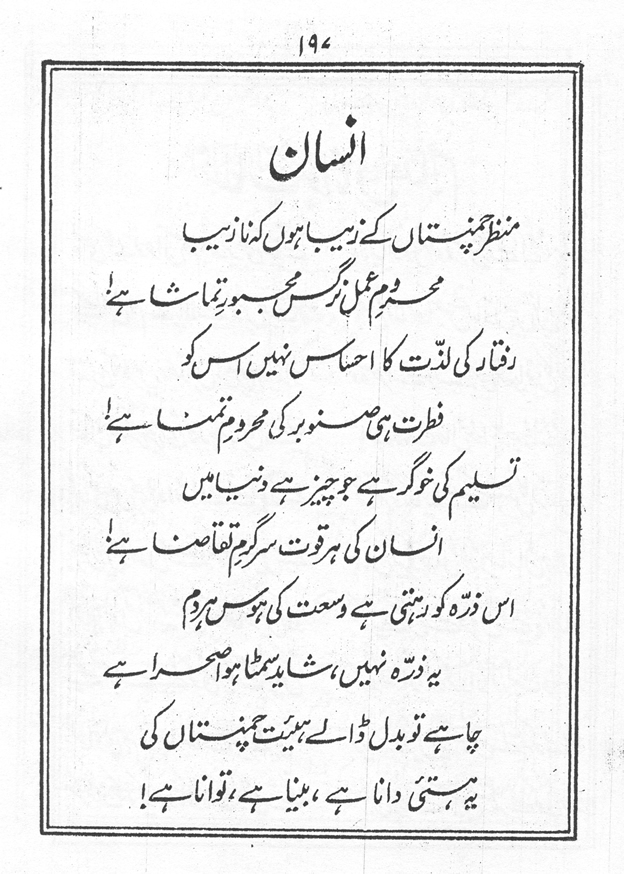 ۱۹۷
انسان
منظر چمنستاں کے زیبا ہوں کہ نازیبا
محرومِ عمل نرگس مجبورِ تماشا ہے!
رفتار کی لذّت کا احساس نہیں اس کو
فطرت ہی صنوبر کی محرومِ تمنا ہے!
تسلیم کی خوگر ہے جو چیز ہے دنیا میں
انسان کی ہر قوت سرگرمِ تقاضا ہے!
اس ذرّہ کو رہتی ہے وسعت کی ہوس ہردم
یہ ذرّہ نہیں، شاید سمٹا ہوا صحرا ہے
چاہے تو بدل ڈالے ہیئت چمنستاں کی
یہ ہستئ دانا ہے، بینا ہے، توانا ہے!